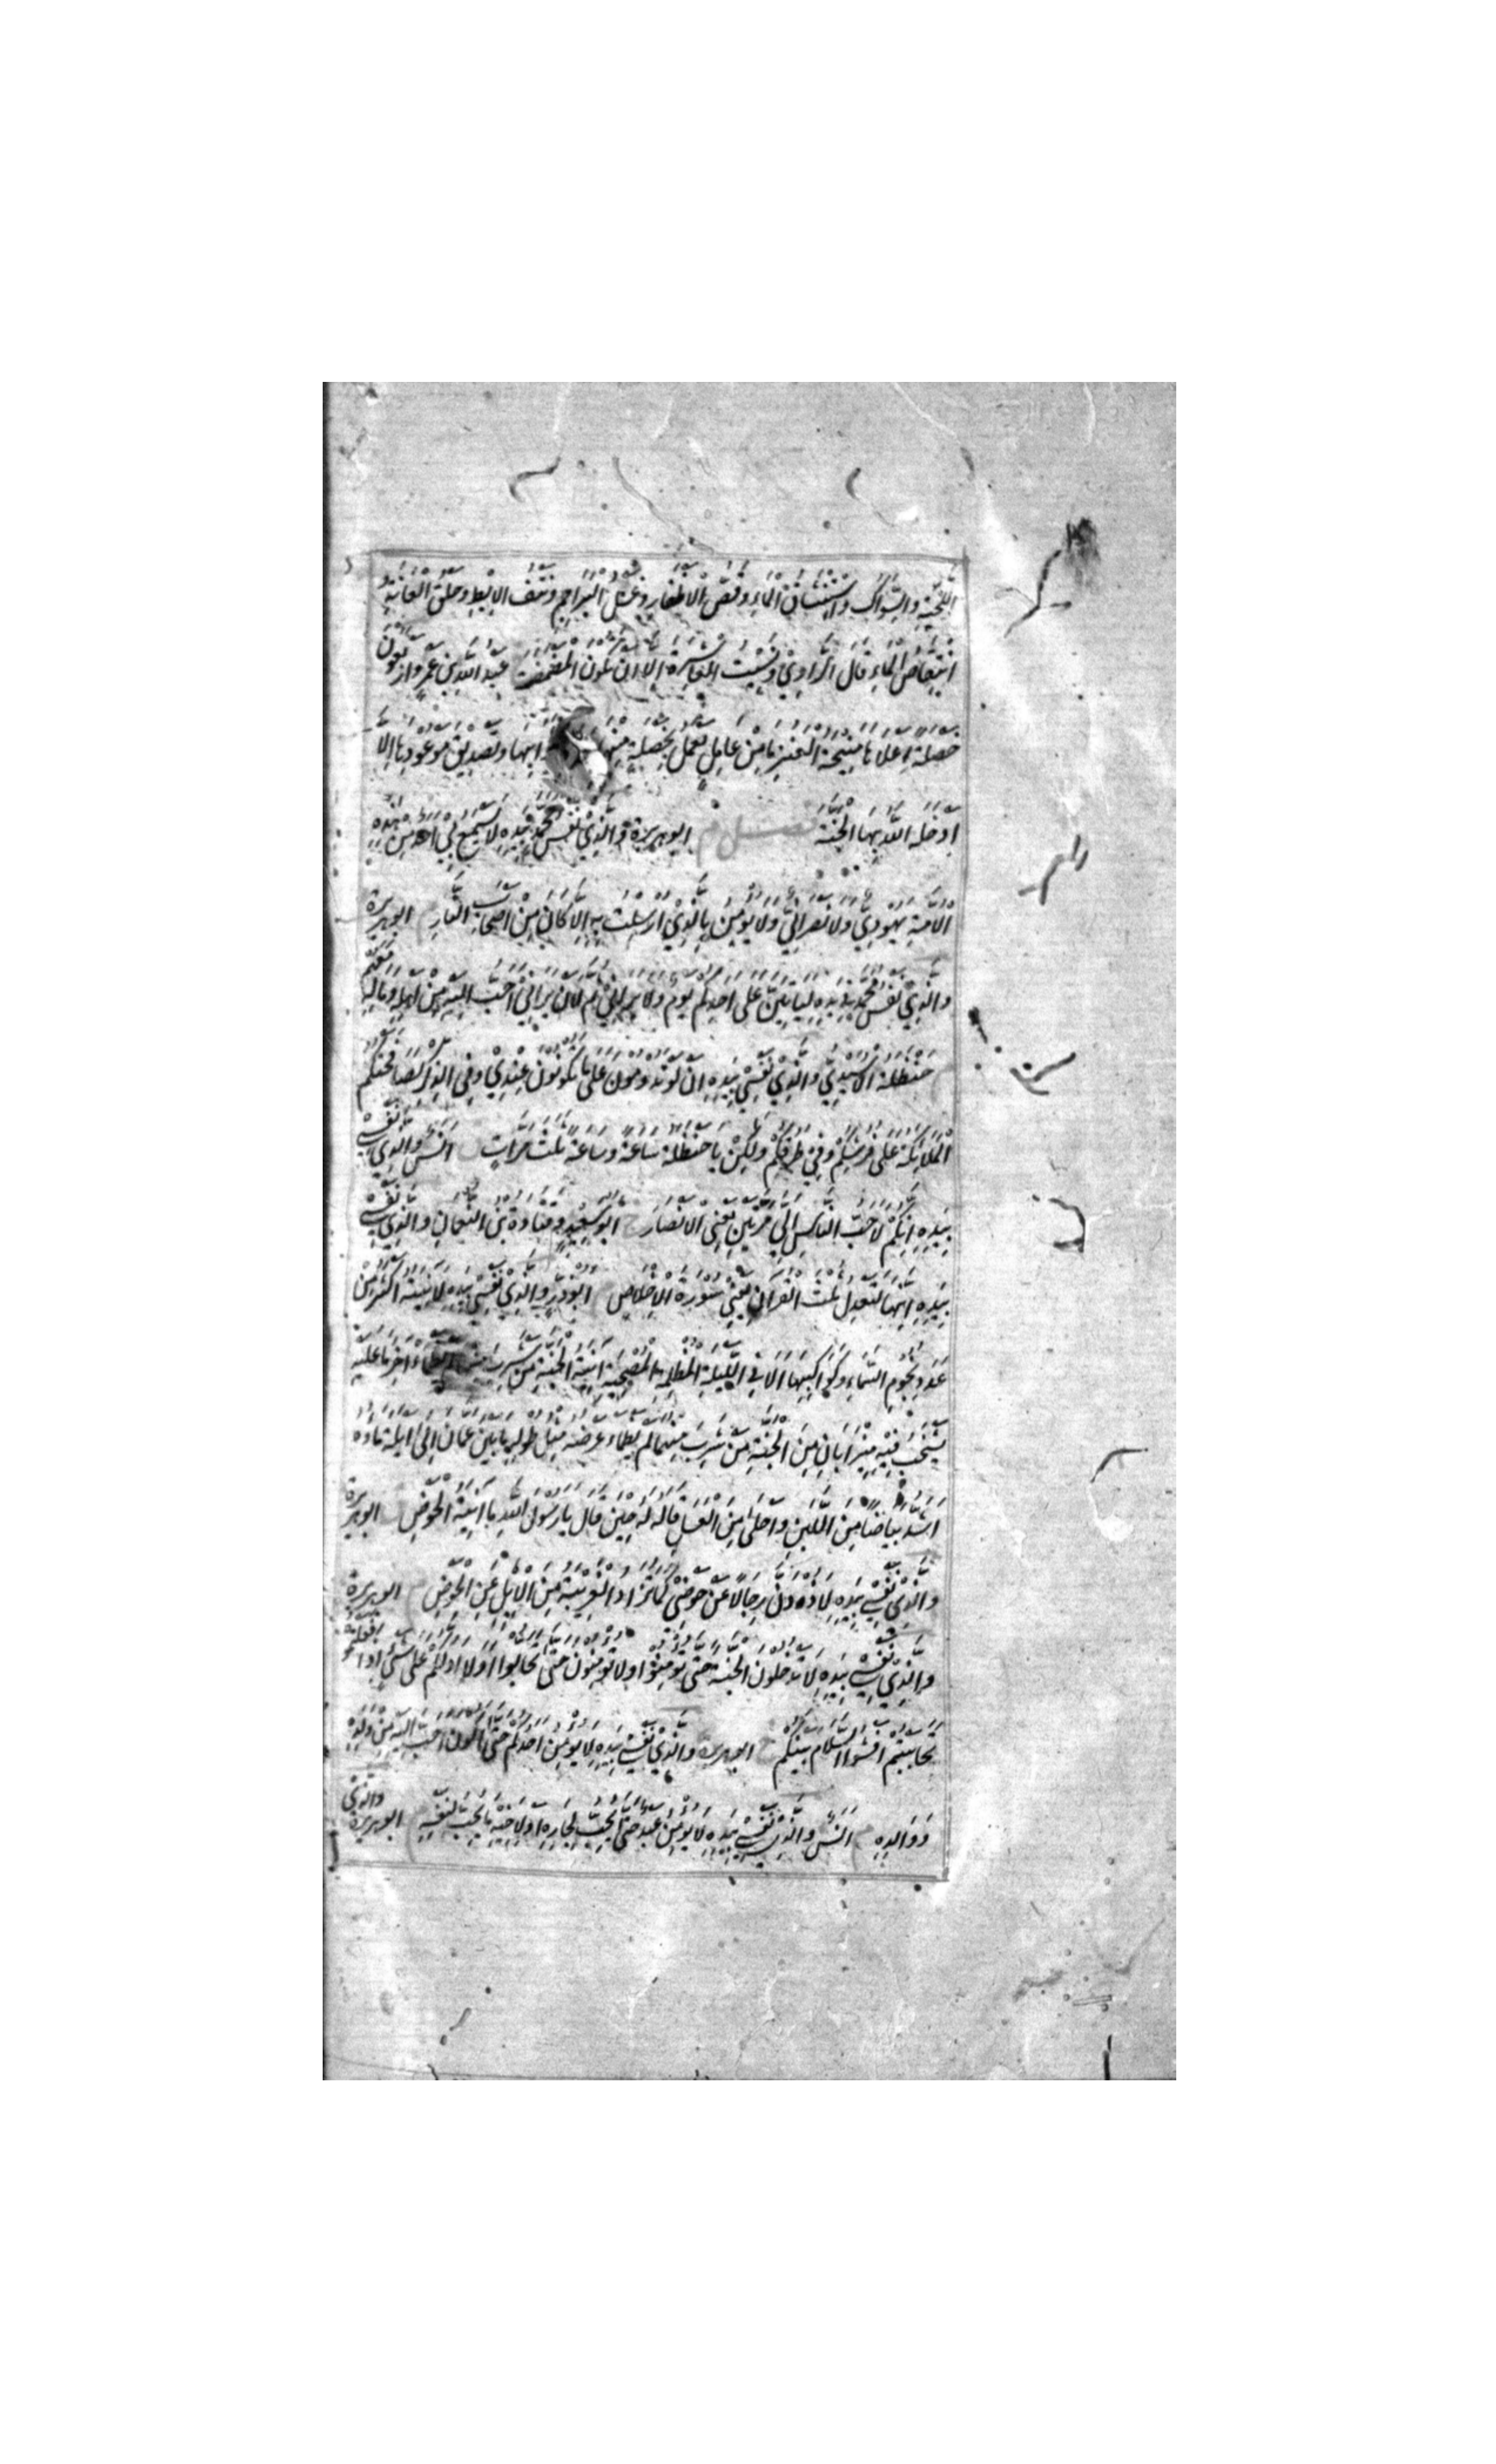 اللِّحْيَةِ وَالسِّوَاكُ وَاسْتِنْشَاقُ الْمَاءِ وَقَصُّ الْاَظْفَارِ وَغَسْلُ الْبَرَاجِمِ وَنَتْفُ الْاِبْطِ وَحَلْقُ الْعَانَةِ وَ
انْتِقَاصُ الْمَاءِ قَالَ الرَّاوِيْ وَنَسِيْتُ الْعَاشِرَةَ اِلَّا اَنْ تَكُوْنَ الْمَضْمَضَةَ عَبْدُ اللّٰهِ بْنُ عَمْرٍو اَرْبَعُوْنَ
خَصْلَةً اَعْلَاهَا مَنِيْحَةُ الْعَنْزِ مَا مِنْ عَامِلٍ يَعْمَلُ بِخَصْلَةٍ مِنْهَا ثَوَابِهَا وَتَصْدِيْقَ مَوْعُوْدِهَا اِلَّا
اَدْخَلَهُ اللّٰهُ بِهَا الْجَنَّةَ فصل م ابوهريرة وَالَّذِيْ نَفْسُ مُحَمَّدٍ بِيَدِهِ لَا يَسْمَعُ بِيْ اَحَدٌ مِنْ هٰذِهِ
الْاُمَّةِ يَهُوْدِيٌّ وَلَا نَصْرَانِيٌّ وَلَا يُؤْمِنُ بِالَّذِيْ اُرْسِلْتُ بِهِ اِلَّا كَانَ مِنْ اَصْحَابِ النَّارِ م ابوهريرة
وَالَّذِيْ نَفْسُ مُحَمَّدٍ بِيَدِهِ لَيَاْتِيَنَّ عَلٰى اَحَدِكُمْ يَوْمٌ وَلَا يَرَانِيْ ثُمَّ لَاَنْ يَرَانِيْ اَحَبُّ اِلَيْهِ مِنْ اَهْلِهِ وَمَالِهِ مَعَهُمْ
م حَنْظَلَةُ الْاُسَيْدِيُّ وَالَّذِيْ نَفْسِيْ بِيَدِهِ اِنْ لَوْ تَدُوْمُوْنَ عَلٰى مَا تَكُوْنُوْنَ عِنْدِيْ وَفِي الذِّكْرِ لَصَافَحَتْكُمُ
الْمَلَائِكَةُ عَلٰى فُرُشِكُمْ وَفِيْ طُرُقِكُمْ وَلٰكِنْ يَا حَنْظَلَةُ سَاعَةً وَسَاعَةً ثَلٰثَ مَرَّاتٍ اَنَسٌ وَالَّذِيْ نَفْسِيْ
بِيَدِهِ اِنَّكُمْ لَاَحَبُّ النَّاسِ اِلَيَّ مَرَّتَيْنِ يَعْنِي الْاَنْصَارَ خ ابوسعيد وقتادة بن النعمان وَالَّذِيْ نَفْسِيْ
بِيَدِهِ اِنَّهَا لَتَعْدِلُ ثُلُثَ الْقُرْاٰنِ يَعْنِيْ سُوْرَةَ الْاِخْلَاصِ ابوذر وَالَّذِيْ نَفْسِيْ بِيَدِهِ لَاٰنِيَتُهُ اَكْثَرُ مِنْ
عَدَدِ نُجُوْمِ السَّمَاءِ وَكَوَاكِبِهَا اَلَا فِي اللَّيْلَةِ الْمُظْلِمَةِ الْمُصْحِيَةِ اٰنِيَةُ الْجَنَّةِ مَنْ شَرِبَ مِنْهَا لَمْ يَظْمَاْ اٰخِرَ مَا عَلَيْهِ
يَشْخُبُ فِيْهِ مِيْزَابَانِ مِنَ الْجَنَّةِ مَنْ شَرِبَ مِنْهُمَا لَمْ يَظْمَاْ عَرْضُهُ مِثْلُ طُوْلِهِ مَا بَيْنَ عَمَّانَ اِلٰى اَيْلَةَ مَاؤُهُ
اَشَدُّ بَيَاضًا مِنَ اللَّبَنِ وَاَحْلٰى مِنَ الْعَسَلِ قَالَهُ لَهُ حِيْنَ قَالَ يَا رَسُوْلَ اللّٰهِ مَا اٰنِيَةُ الْحَوْضِ ابوهريرة
وَالَّذِيْ نَفْسِيْ بِيَدِهِ لَاَذُوْدَنَّ رِجَالًا عَنْ حَوْضِيْ كَمَا تُذَادُ الْغَرِيْبَةُ مِنَ الْاِبِلِ عَنِ الْحَوْضِ م ابوهريرة
وَالَّذِيْ نَفْسِيْ بِيَدِهِ لَا تَدْخُلُوْنَ الْجَنَّةَ حَتّٰى تُؤْمِنُوْا وَلَا تُؤْمِنُوْنَ حَتّٰى تَحَابُّوْا اَوَلَا اَدُلُّكُمْ عَلٰى شَيْءٍ اِذَا فَعَلْتُمُوْهُ
تَحَابَبْتُمْ اَفْشُوا السَّلَامَ بَيْنَكُمْ خ ابوهريرة وَالَّذِيْ نَفْسِيْ بِيَدِهِ لَا يُؤْمِنُ اَحَدُكُمْ حَتّٰى اَكُوْنَ اَحَبَّ اِلَيْهِ مِنْ وَلَدِهِ
وَوَالِدِهِ م اَنَسٌ وَالَّذِيْ نَفْسِيْ بِيَدِهِ لَا يُؤْمِنُ عَبْدٌ حَتّٰى يُحِبَّ لِجَارِهِ اَوْ لِاَخِيْهِ مَا يُحِبُّ لِنَفْسِهِ م ابوهريرة وَالَّذِيْ